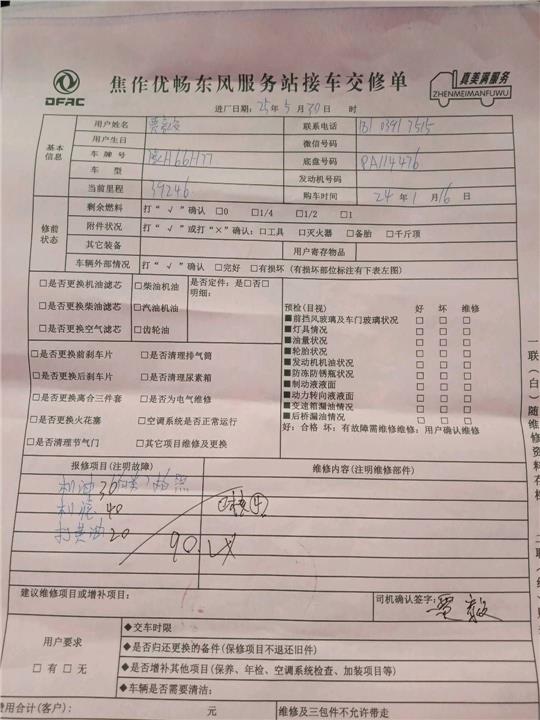 DFAC
焦作优畅东风服务站接车交修单
真美满服务
ZHENMEIMANFUWU
进厂日期：25年5月30日 时
基本信息
用户姓名 联系电话 181 0391 7515
用户生日 微信号码
车牌号 底盘号码 PA114476
车型 发动机号码
当前里程 39246 购车时间 24年1月16日
修前状态
剩余燃料 打“√”确认 □0 □1/4 □1/2 □1
附件状况 打“√”或打“×”确认：□工具 □灭火器 □备胎 □千斤顶
其它装备 用户寄存物品
车辆外部情况 打“√”确认 □完好 □有损坏（有损坏部位标注有下表左图）
□是否更换机油滤芯 □柴油机油 是否定件：是□否□
明细：
□是否更换柴油滤芯 □汽油机油
□是否更换空气滤芯 □齿轮油
□是否更换前刹车片 □是否清理排气筒
□是否更换后刹车片 □是否清理尿素箱
□是否更换离合三件套 □是否为电气维修
□是否更换火花塞 □空调系统是否正常运行
□是否清理节气门 □其它项目维修及更换
预检（目视） 好 坏 维修
■前挡风玻璃及车门玻璃状况 □ □ □
■灯具情况 □ □ □
■油量状况 □ □ □
■轮胎状况 □ □ □
■发动机机油状况 □ □ □
■防冻防锈瓶状况 □ □ □
■制动液液面 □ □ □
■动力转向液液面 □ □ □
■变速箱漏油情况 □ □ □
■后桥漏油情况 □ □ □
好：合格 坏：有故障需维修维修：用户确认维修
报修项目（注明故障） 维修内容（注明维修部件）
机油 30
机滤 40
打黄油 20
90.
建议维修项目或增补项目：
司机确认签字：
用户要求
□有 □无
◆交车时限
◆是否归还更换的备件（保修项目不退还旧件）
◆是否增补其他项目（保养、年检、空调系统检查、加装项目等）
◆车辆是否需要清洁：
费用合计（客户）： 元 维修及三包件不允许带走
一联（白）随维修资料存档
二联